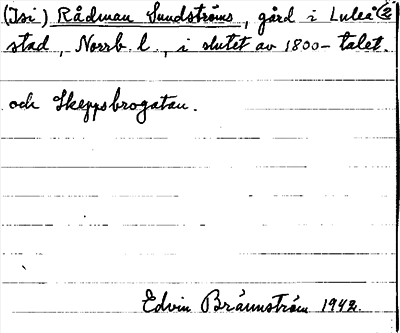 (Isi) Rådman Sundströms, gård i Luleå ②
stad, Norrb. l., i slutet av 1800-talet.
och Skeppsbrogatan.
Edvin Brännström 1942.